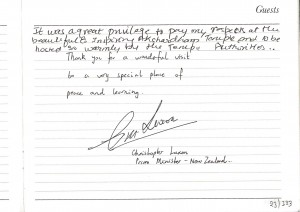 Guests
It was a great privilege to pay my respects at the
beautiful & inspiring Akshardham Temple and to be
hosted so warmly by the Temple Authorities..
Thank you for a wonderful visit
to a very special place of
peace and learning.
Christopher Luxon
Prime Minister - New Zealand.